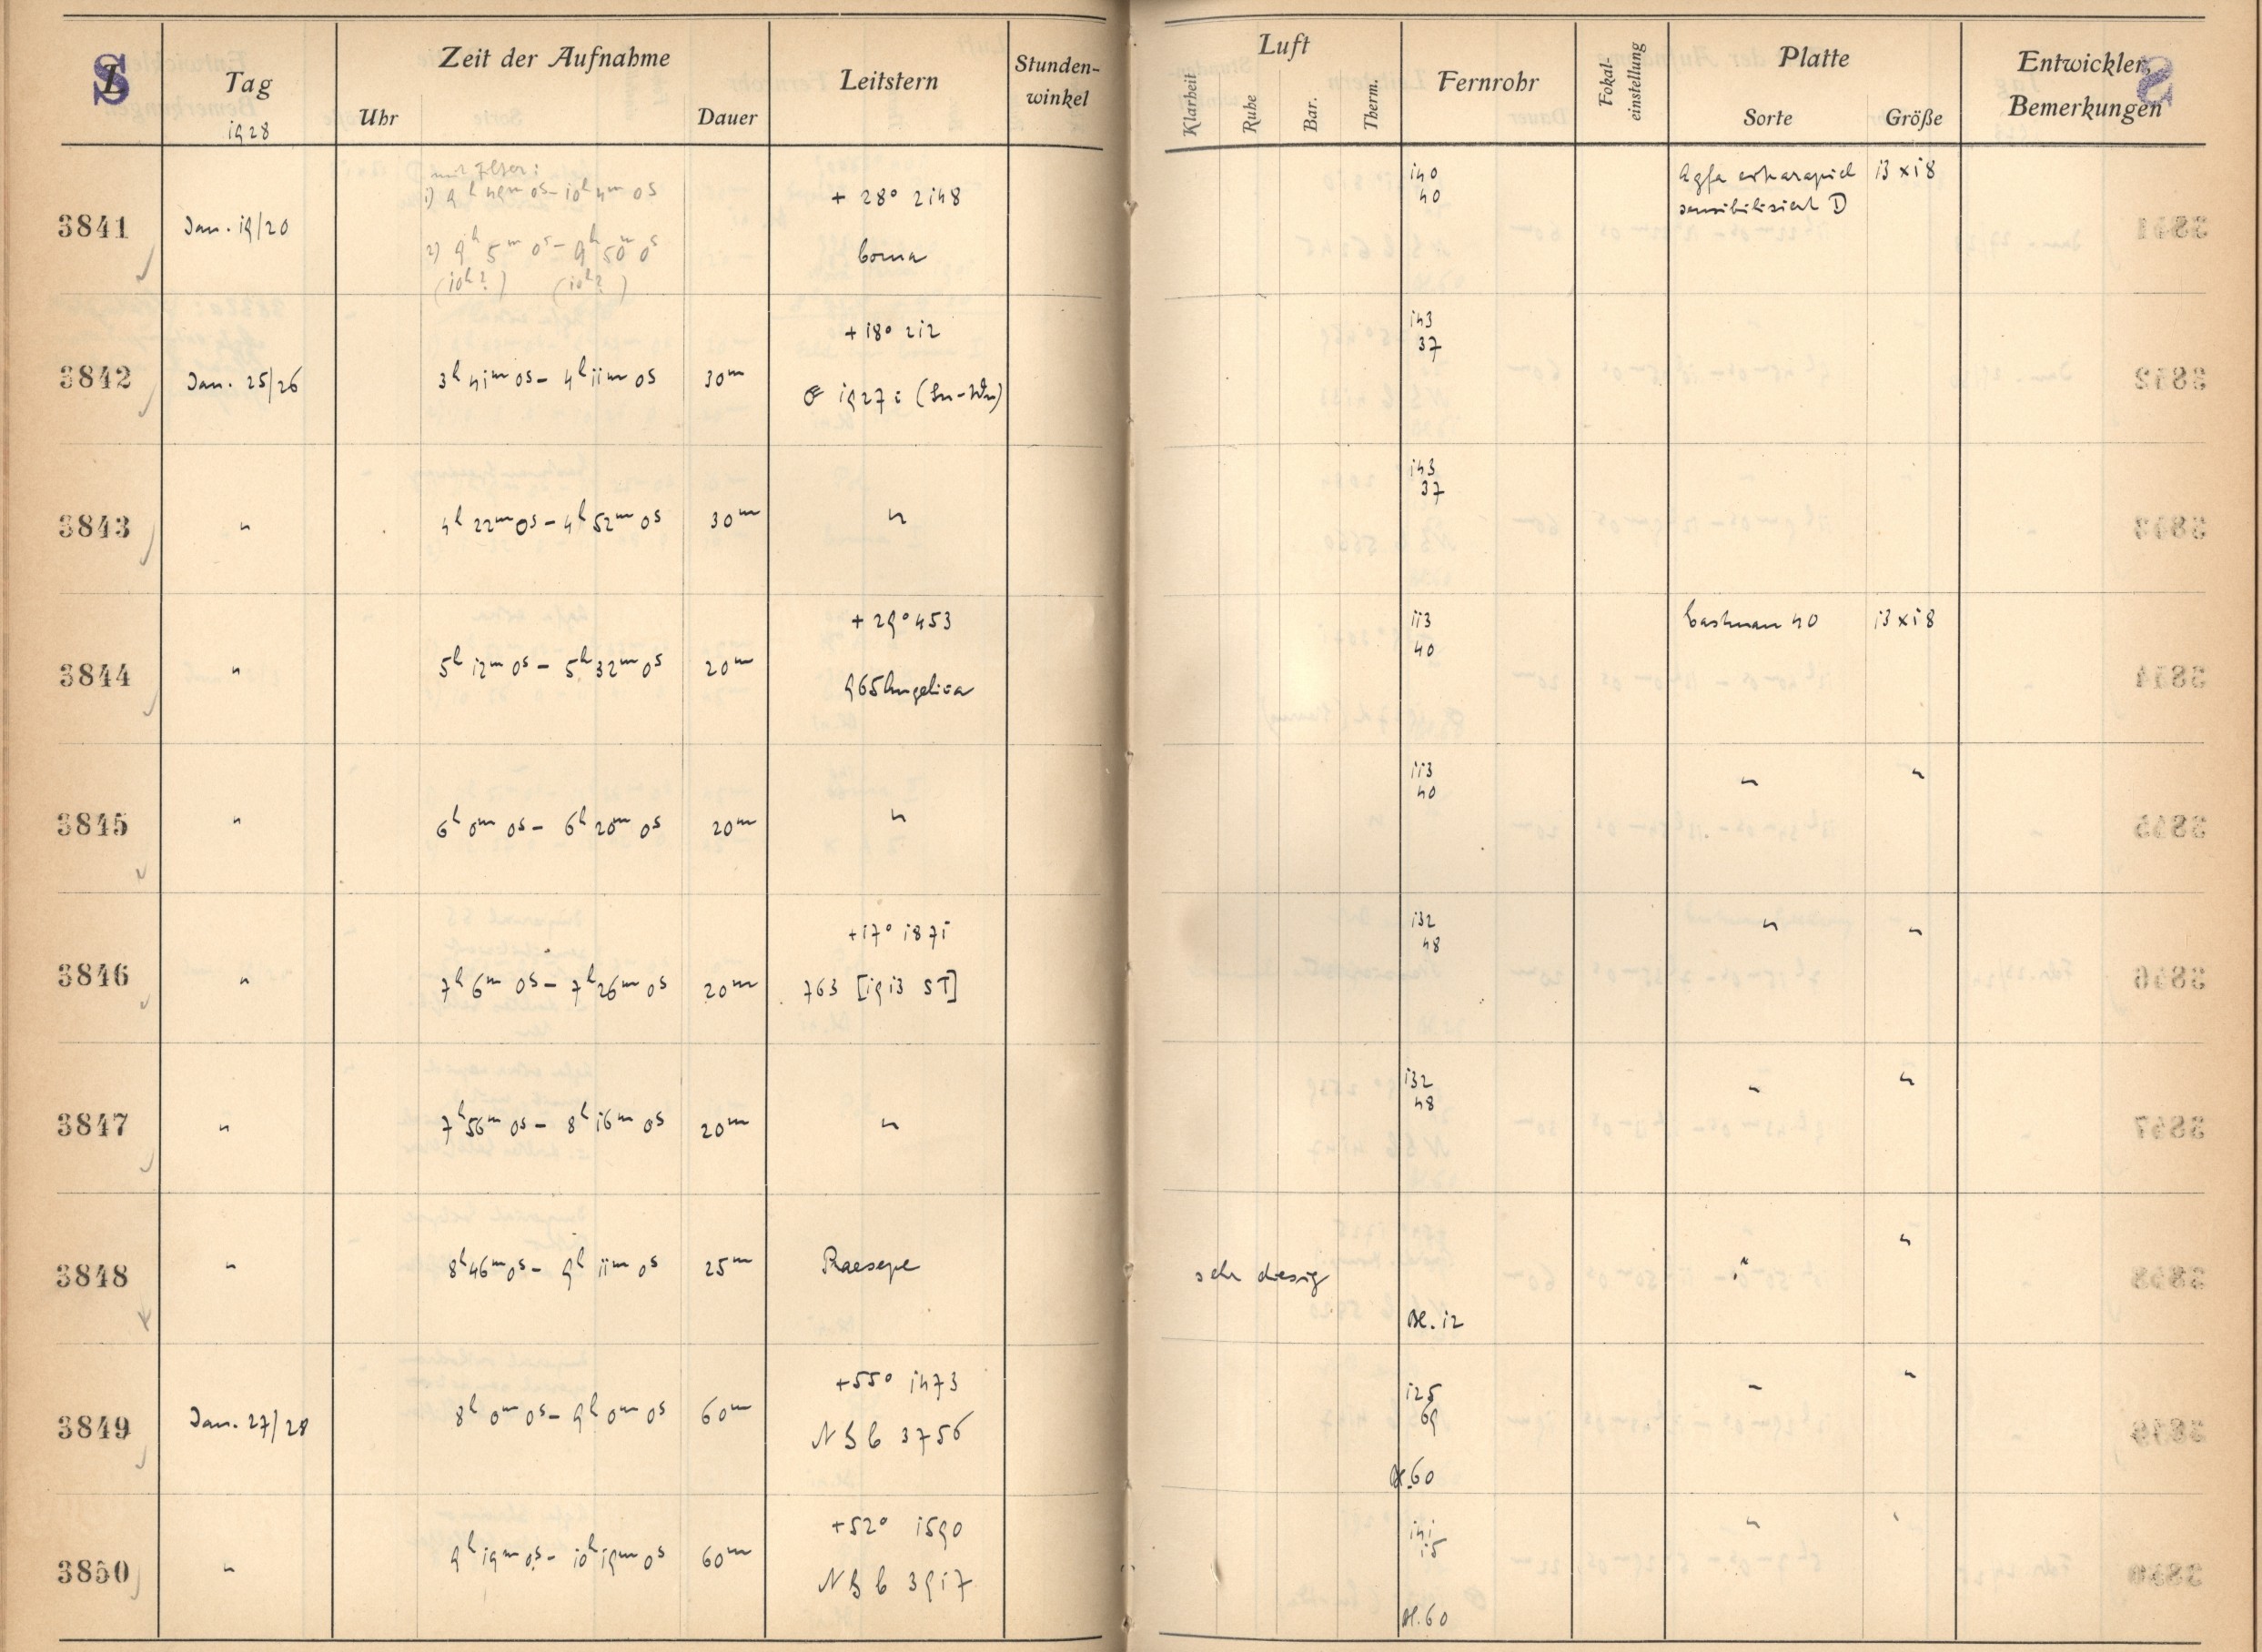 S L
Tag
1928
Zeit der Aufnahme
Uhr
Dauer
Leitstern
Stunden-
winkel
Luft
Klarheit
Ruhe
Bar.
Therm.
Fernrohr
Fokal-
einstellung
Platte
Sorte
Größe
Entwickler,
Bemerkungen
3841
Jan. 19/20
mit Filter:
1) 9h 49m 0s - 10h 4m 0s
2) 9h 5m 0s - 9h 50m 0s
(10h?) (10h?)
+ 28° 2148
Coma
140
40
Agfa extrarapid
sensibilisiert D
13 x 18
3842
Jan. 25/26
3h 41m 0s - 4h 11m 0s
30m
+ 18° 212
1927 i
143
37
3843
"
4h 22m 0s - 4h 52m 0s
30m
"
143
37
3844
"
5h 12m 0s - 5h 32m 0s
20m
+ 29° 453
965 Angelica
113
40
Eastman 40
13 x 18
3845
"
6h 0m 0s - 6h 20m 0s
20m
"
113
40
"
"
3846
"
7h 6m 0s - 7h 26m 0s
20m
+17° 1871
763 [1913 ST]
132
48
"
"
3847
"
7h 56m 0s - 8h 16m 0s
20m
"
132
48
"
"
3848
"
8h 46m 0s - 9h 11m 0s
25m
Praesepe
sehr diesig
Bl. 12
"
"
3849
Jan. 27/28
8h 0m 0s - 9h 0m 0s
60m
+55° 1473
N G C 3756
125
69
Bl. 60
"
"
3850
"
9h 19m 0s - 10h 19m 0s
60m
+52° 1590
N G C 3917
141
15
Bl. 60
"
"